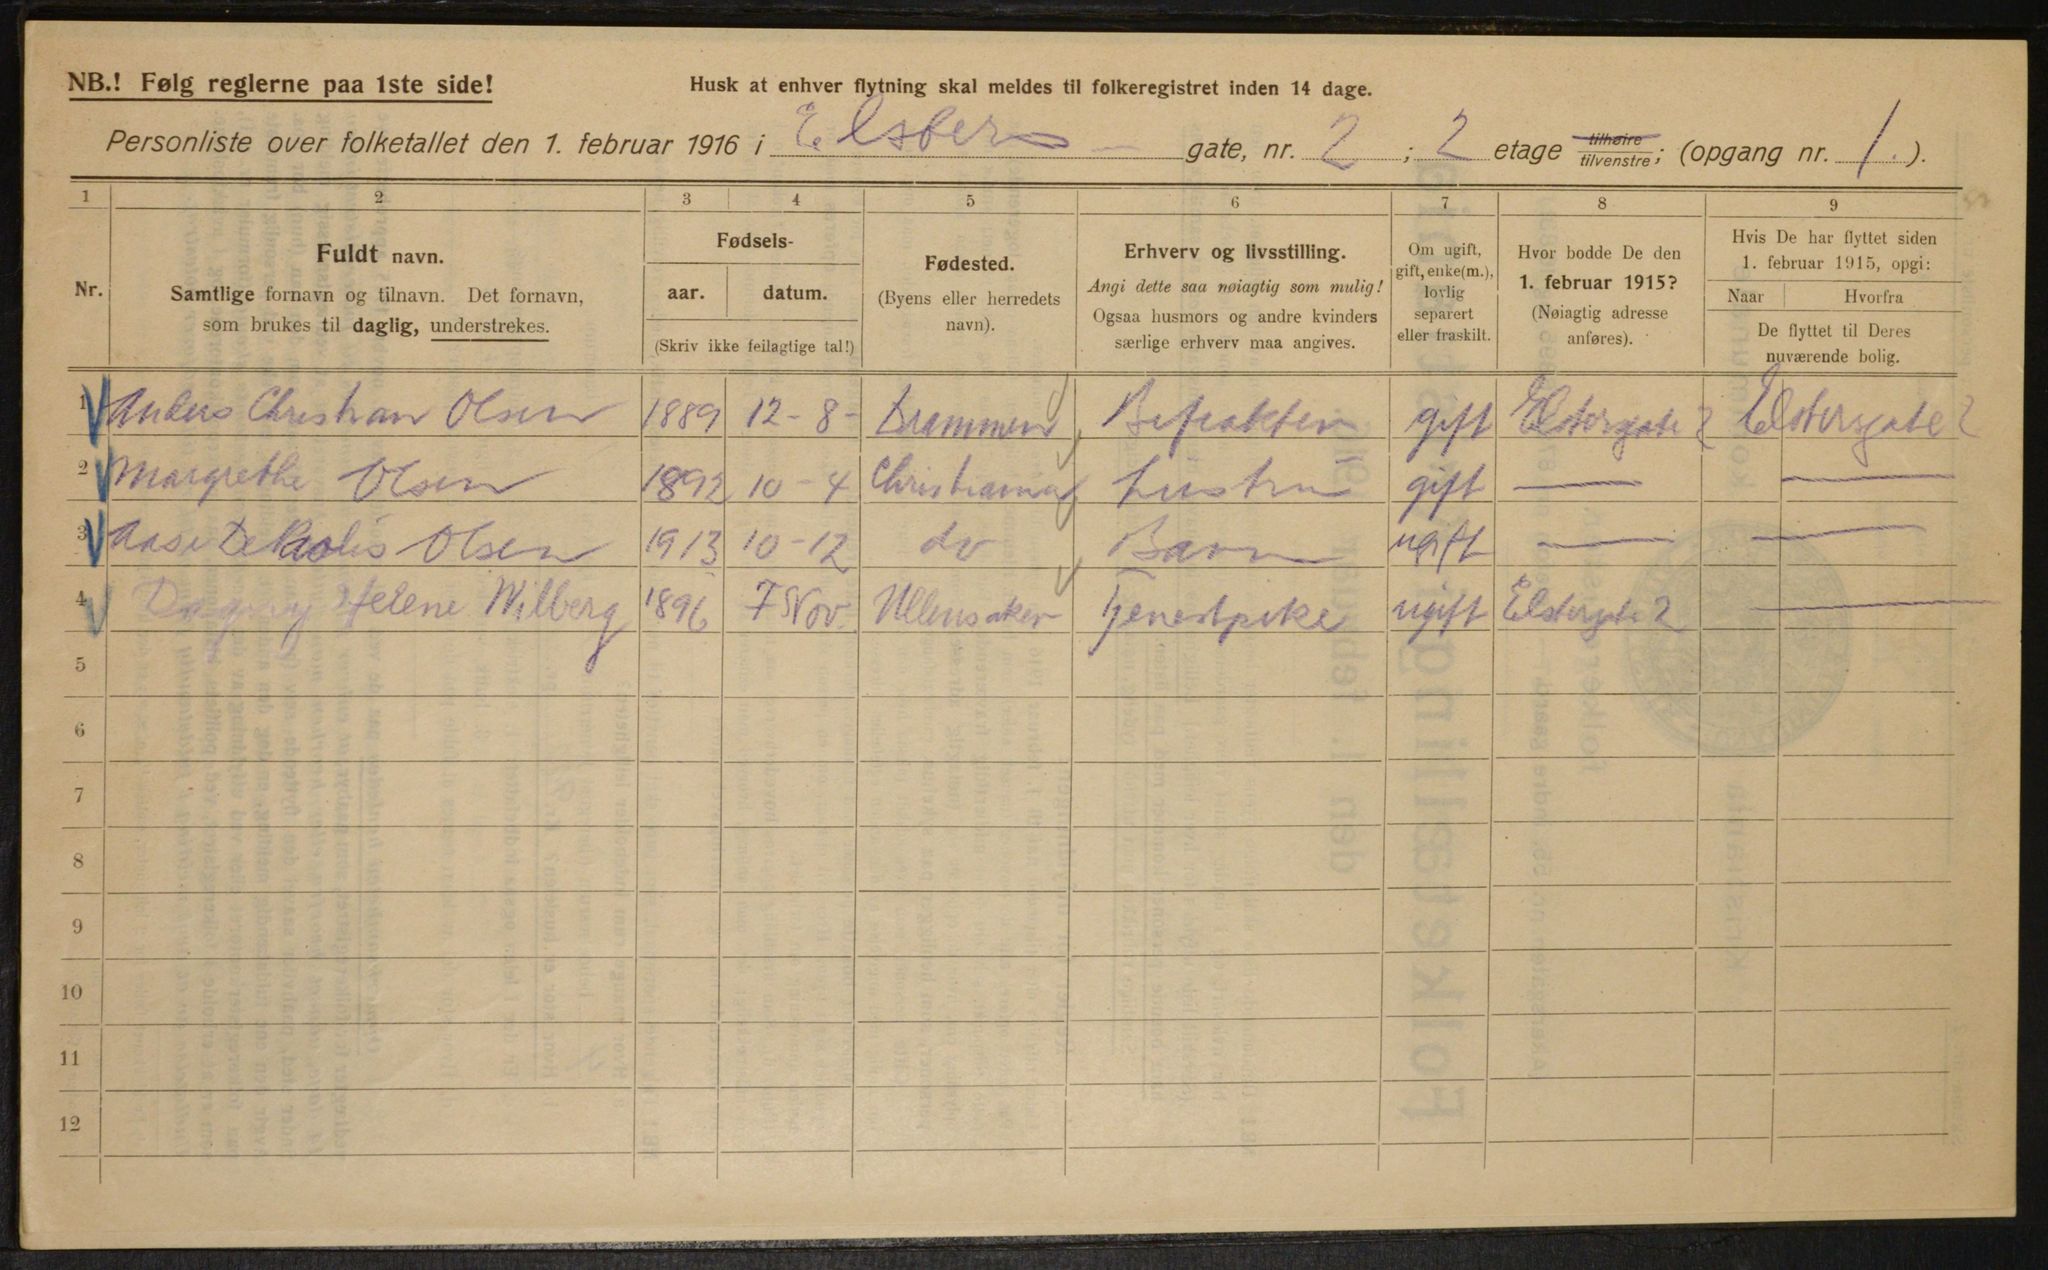 NB.! Følg reglerne paa 1ste side!
Husk at enhver flytning skal meldes til folkeregistret inden 14 dage.
Personliste over folketallet den 1. februar 1916 i Elsters gate, nr. 2 ; 2 etage tilhøire tilvenstre; (opgang nr. 1.).
1 2 3 4 5 6 7 8 9
Nr.
Fuldt navn.
Samtlige fornavn og tilnavn. Det fornavn,
som brukes til daglig, understrekes.
Fødsels-
aar. datum.
(Skriv ikke feilagtige tal!)
Fødested.
(Byens eller herredets
navn).
Erhverv og livsstilling.
Angi dette saa nøiagtig som mulig!
Ogsaa husmors og andre kvinders
særlige erhverv maa angives.
Om ugift,
gift, enke(m.),
lovlig
separert
eller fraskilt.
Hvor bodde De den
1. februar 1915?
(Nøiagtig adresse
anføres).
Hvis De har flyttet siden
1. februar 1915, opgi:
Naar Hvorfra
De flyttet til Deres
nuværende bolig.
1 Anders Christian Olsen 1889 12-8- Drammen gift Elstersgate 2 Elstersgate 2
2 Margrethe Olsen 1892 10-4 Christiania Hustru gift —
3 Aase Olsen 1913 10-12 do Barn ugift —
4 Dagny Helene Wilberg 1896 7 Nov. Ullensaker Tjenestpike ugift Elstergate 2 —
5
6
7
8
9
10
11
12